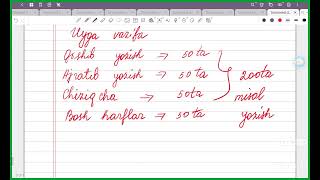 Uyga vazifa
Qo'shib yozish → 50 ta
Ajratib yozish → 50 ta 200 ta
Chiziqcha → 50 ta misol
Bosh harflar → 50 ta yozish